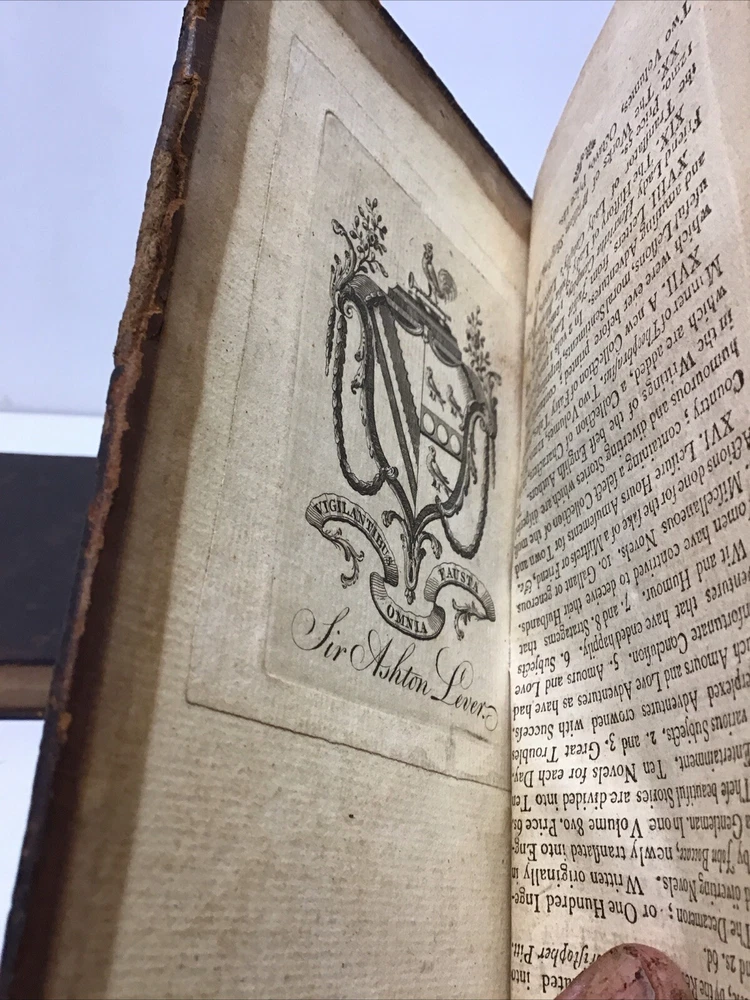 VIGILANTIBUS
OMNIA
FAUSTA
Sir Ashton Lever
ated into
Pitt.
and 2s. 6d.
The Decameron; or One Hundred Inge-
diverting Novels. Written originally in
by John Boccace, newly translated into Eng-
a Gentleman. In one Volume 8vo. Price 6s.
These beautiful Stories are divided into Ten
Entertainment. Ten Novels for each Day,
Subjects. 2. and 3. Great Troubles
Adventures crowned with Success.
Amours and Love Adventures as have had
Conclusion. 5. Amours and Love
that have ended happily. 6. Subjects
Wit and Humour. 7. and 8. Stratagems that
have contrived to deceive their Husbands.
Miscellaneous Novels. 10. Gallant or generous
Actions done for the sake of a Mistress or Friend, &c.
XVI. Leisure Hours Amusements for Town and
Country, containing a select Collection of the most
humourous and diverting Stories which are
in the Writings of the best English Authors.
which are added, a Collection of Characters
Manner of Theophrastus. Two Volumes,
XVII. A new Collection of Fairy
which were ever before printed,
useful Lessons, moral Sentiments,
and amusing Adventures,
XVIII. Letters from
Friend Lady
XIX. The History of
the Translator of
12mo. Price
XX. The Works of
Two Volumes